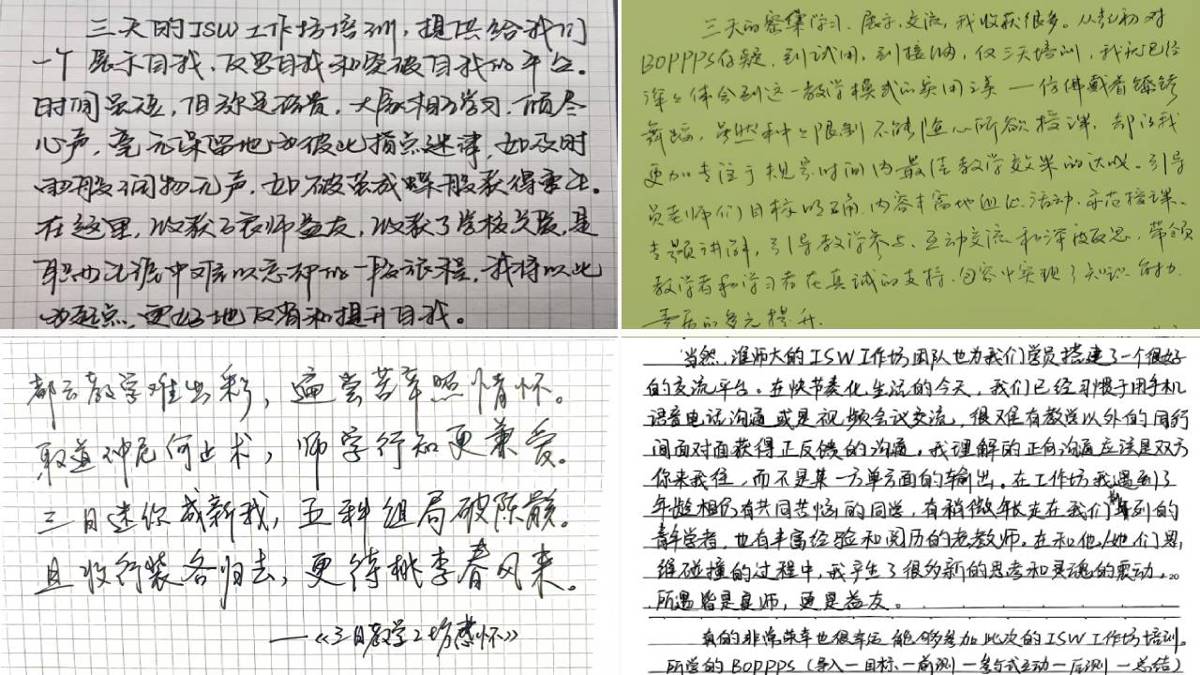 三天的ISW工作坊培训,提供给我们
一个展示自我、反思自我和突破自我的平台。
时间虽短,但弥足珍贵,大家相互学习,倾尽
心声,毫无保留地为彼此指点迷津,如及时
雨般润物无声,如破茧成蝶般获得重生。
在这里,收获了良师益友,收获了学校关爱,是
职业生涯中难以忘却的一段旅程,我将以此
为起点,更好地反省和提升自我。
三天的密集学习、展示、交流,我收获很多。从起初对
BOPPPS存疑,到试用,到接纳,仅三天培训,我就已经
深深体会到这一教学模式的实用之美——仿佛戴着镣铐
舞蹈,虽然种种限制不能随心所欲授课,却让我
更加专注于规定时间内最佳教学效果的达成。引导
员老师们目标明确、内容丰富地通过活动、示范授课、
专题讲解,引导教学参与、互动交流和深度反思,带领
教学者和学习者在真诚的支持、包容中实现了知识、能力、
素质的多元提升.
都云教学难出彩,遍尝苦辛照情怀。
取道仲尼何止术,师学行知更兼爱。
三日迷你成新我,五科组局破陈骸。
且收行装各归去,更待桃李春风来。
——《三日教学工坊感怀》
当然,淮师大的ISW工作坊团队也为我们学员搭建了一个很好
的交流平台。在快节奏化生活的今天,我们已经习惯于用手机
语音电话沟通或是视频会议交流,很难有教学以外的同行
间面对面获得正反馈的沟通。我理解的正向沟通应该是双方
你来我往,而不是某一方单方面的输出。在工作坊我遇到了
年龄相仿有共同苦恼的同学,有稍微年长夹在我们系列的
青年学者,也有丰富经验和阅历的老教师。在和他/她们思
维碰撞的过程中,我产生了很多新的思考和灵魂的震动。
所遇皆是良师,更是益友。
真的非常荣幸也很幸运能够参加此次的ISW工作坊培训。
所学的BOPPPS(导入—目标—前测—参与式互动—后测—总结)